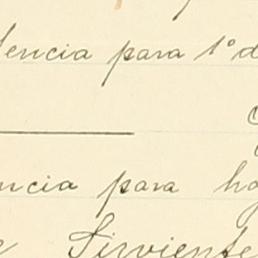 dencia para 1º d
ncia para ha
e Sirviente